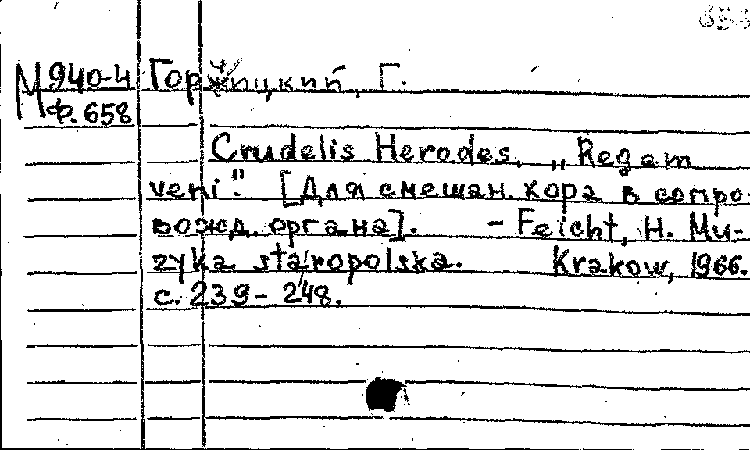 М 940-4 Горжицкий, Г.
Ф. 658
Crudelis Herodes, „Regem
veni". [Для смешан. хора в сопро-
вожд. органа]. - Feicht, H. Mu-
zyka staropolska. Krakow, 1966.
с. 239-248.